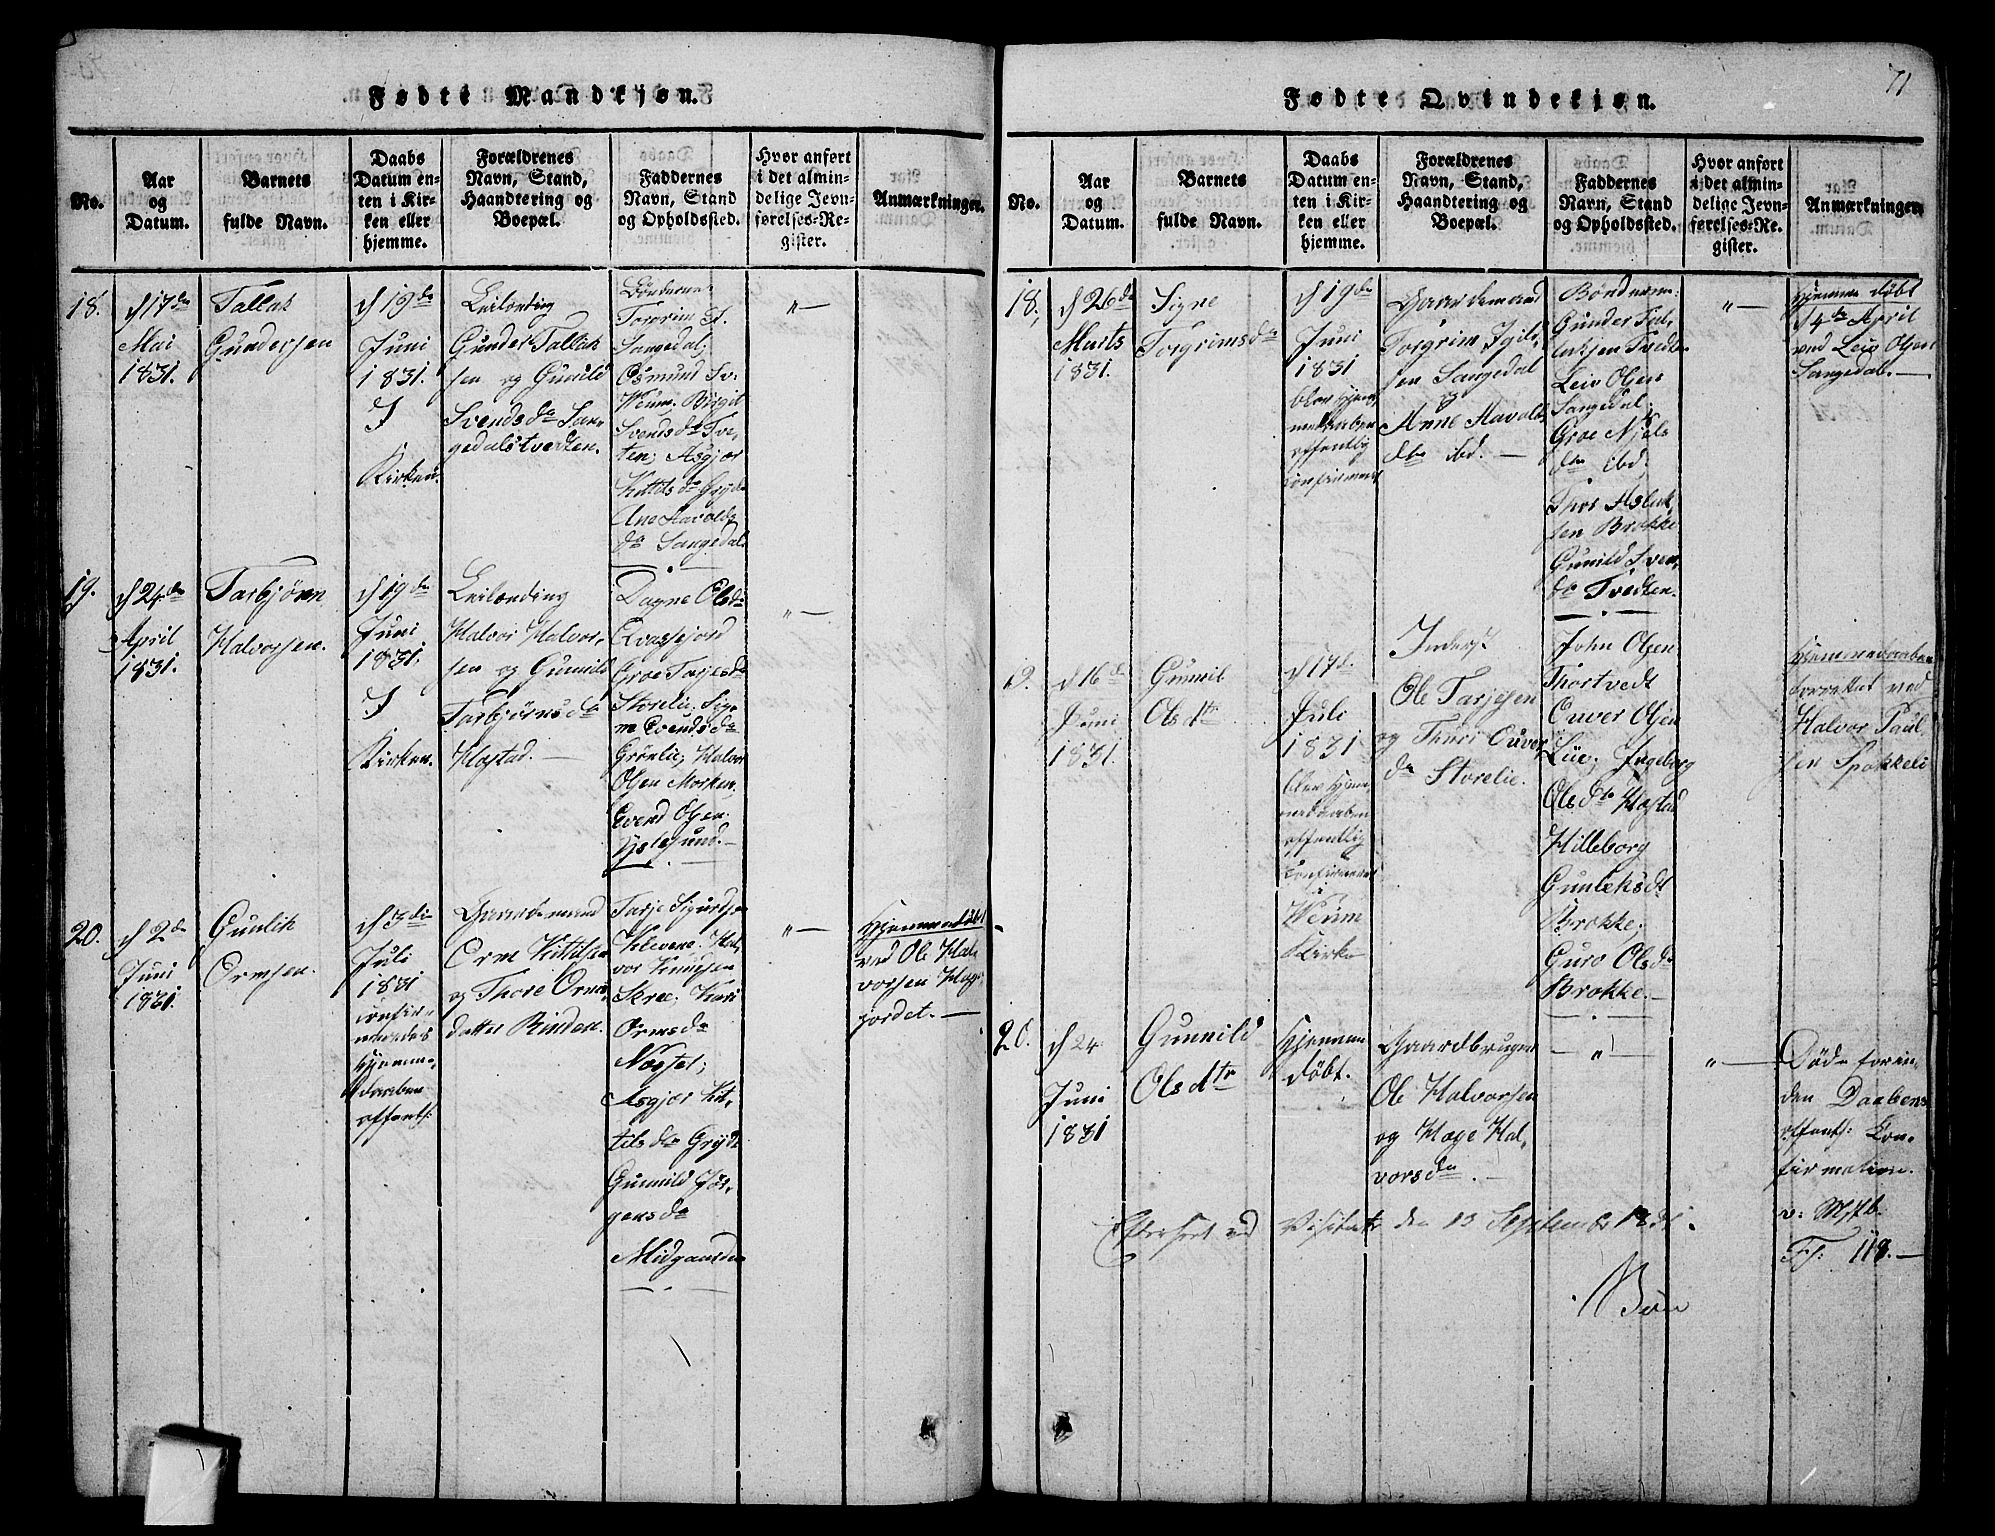 Fødte Mandkjøn.
No.
Aar
og
Datum.
Barnets
fulde Navn.
Daabs
Datum en-
ten i Kir-
ken eller
hjemme.
Forældrenes
Navn, Stand,
Haandtering og
Boepæl.
Faddernes
Navn, Stand
og Opholdssted.
Hvor anført
i det almin-
delige Jevn-
førelses-Re-
gister.
Anmærkninger.
18.
d 17de
Mai
1831.
Tallak
Gundersen
d 19de
Juni
1831.
I
Kirken.
Leilænding
Gunder Tallak
sen og Gunild
Svendsda San-
gedalstvedten.
Bønderne
Torgrim
Sangedal,
Osmund
Birgit
Svendsda Tve-
ten; Asgjær
Kittilsda Gryde
Ane Havolds
da Sangedal
"—
19.
d 24de
April
1831.
Tarbjørn
Halvorsen.
d 19de
Juni
1831.
I
Kirken.
Leilænding
Halvor Halvor-
sen og Gunild
Tarbjørnsda
Hostad.
Dagne Olsda
Qvassfjord
Groe Tarjesda
Storelie,
Evendsda
Grønlie; Halvor
Olsen Morken,
Evend Olsen
"—
20.
d 2de
Juni
1831.
Gunlik
Ormsen.
d 3die
Juli
1831
confir-
meredes
Hjemme-
daaben
offentl:
Gaardemand
Orm Kittilsen
og Thore Orms-
datter Rinden.
Tarje Sigurdsen
Klevene. Hal-
vor Knudsen
Skree; Kari
Ormsda
Nægset;
Asgjær Kit-
tilsda Gryde
Gunnild Jør-
gensda
Midgaarden
"—
Hjemmedøbt
ved Ole Hal-
vorsen Hage-
jordet.—
71
Fødte Qvindekjøn.
No.
Aar
og
Datum.
Barnets
fulde Navn.
Daabs
Datum en-
ten i Kir-
ken eller
hjemme.
Forældrenes
Navn, Stand,
Haandtering og
Boepæl.
Faddernes
Navn, Stand
og Opholdssted.
Hvor anført
i det almin-
delige Jevn-
førelses-Re-
gister.
Anmærkninger
18.
d 26de
Marts
1831.
Signe
Torgrimsda
d 19de
Juni
1831
blev Hjem-
medaaben
offentlig
confirmeret
Gaardemand
Torgrim Igils-
sen Sangedal
og
Anne Havolds
dtr ibd.—
Bønderne:
Gunder Tal-
laksen Tvedten
Leiv Olsen
Sangedal;
Groe Njels
dtr ibd;
Thor Aslak-
sen Brokke
Gunild Sven
da Tvedten.
"—
Hjemmedøbt
4de April
ved Leiv Olsen
Sangedal.—
9.
d 16de
Juni
1831.
Gunnil
Olsdtr
d 17d.
Juli
1831
blev Hjem-
medaaben
offentlig
confirmeret
i
Kirke
Inderst
Ole Tarjesen
og Thuri Ouver
da Storelie.
John Olsen
Thortvedt
Ouver Olsen
Lüe; Ingeborg
Olsdtr Hostad
Hilleborg
Gunleksdt
Brokke;
Guro Olsda
Brokke.—
Hjemmedaaben
forrettet ved
Halvor Paul-
sen Spokkeli
20.
d 24
Juni
1831
Gunnild
Olsdtr
Hjemme
døbt.
Gaardbruger
Ole Halvorsen
og Hæge Hal-
vorsda.—
— " —
"—
Død forin-
den Daabens
offentl: Con-
firmation.
v: Mstb.
F: 118.—
Efterseet ved Visitats den 13 September 1831.